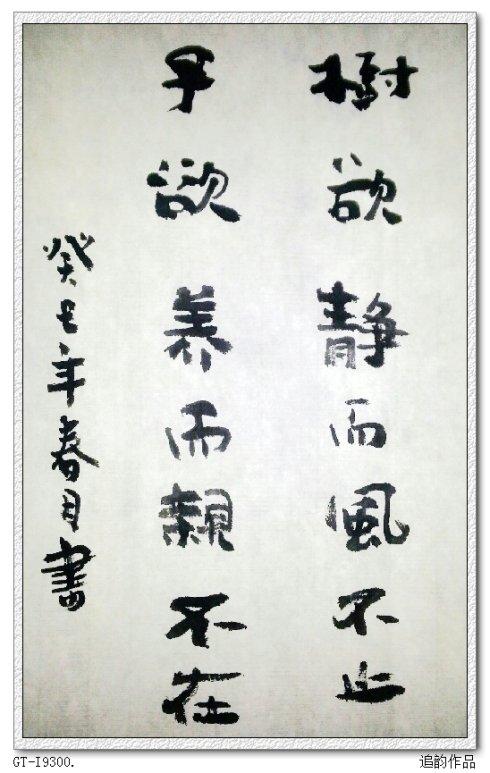 樹欲静而風不止
子欲养而親不在
癸巳年春月書
GT-I9300.
追韵作品